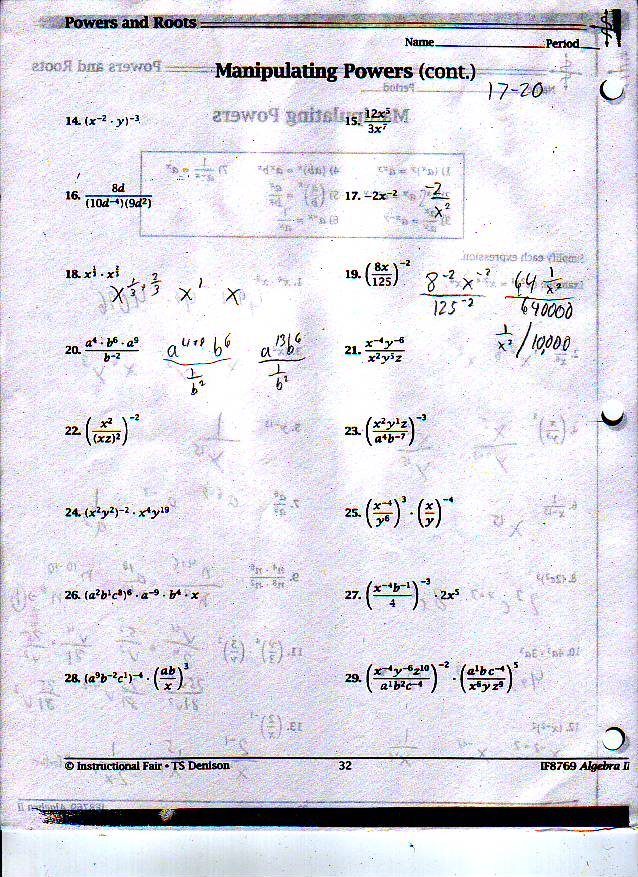 Powers and Roots
Name Period
Manipulating Powers (cont.)
17-20
14. (x⁻² · y)⁻³ 15. 12x⁵/3x⁷
16. 8d/(10d⁻⁴)(9d²) 17. −2x⁻² -2/x²
18. x^(1/3) · x^(2/3) x^(1/3+2/3) x¹ x
19. (8x/125)⁻² 8⁻² x⁻²/125⁻² 64 1/x²/640000
1/x² / 10,000
20. a⁴ · b⁶ · a⁹/b⁻² a⁴⁺⁹ b⁶/(1/b²) a¹³b⁶/(1/b²)
21. x⁻⁴y⁻⁶/x²y⁵z
22. (x²/(xz)²)⁻² 23. (x²y¹z/a⁴b⁻⁷)⁻³
24. (x²y²)⁻² · x⁴y¹⁹ 25. (x⁻⁴/y⁶)³ · (x/y)⁻⁴
26. (a²b¹c⁸)⁶ · a⁻⁹ · b⁴ · x 27. (x⁻⁴b⁻¹/4)⁻³ · 2x⁵
28. (a⁹b⁻²c¹)⁻⁴ · (ab/x)³ 29. (x⁻⁴y⁻⁶z¹⁰/a¹b²c⁻⁴)⁻² · (a¹bc⁻⁴/x⁶yz⁹)⁵
© Instructional Fair • TS Denison 32 IF8769 Algebra II